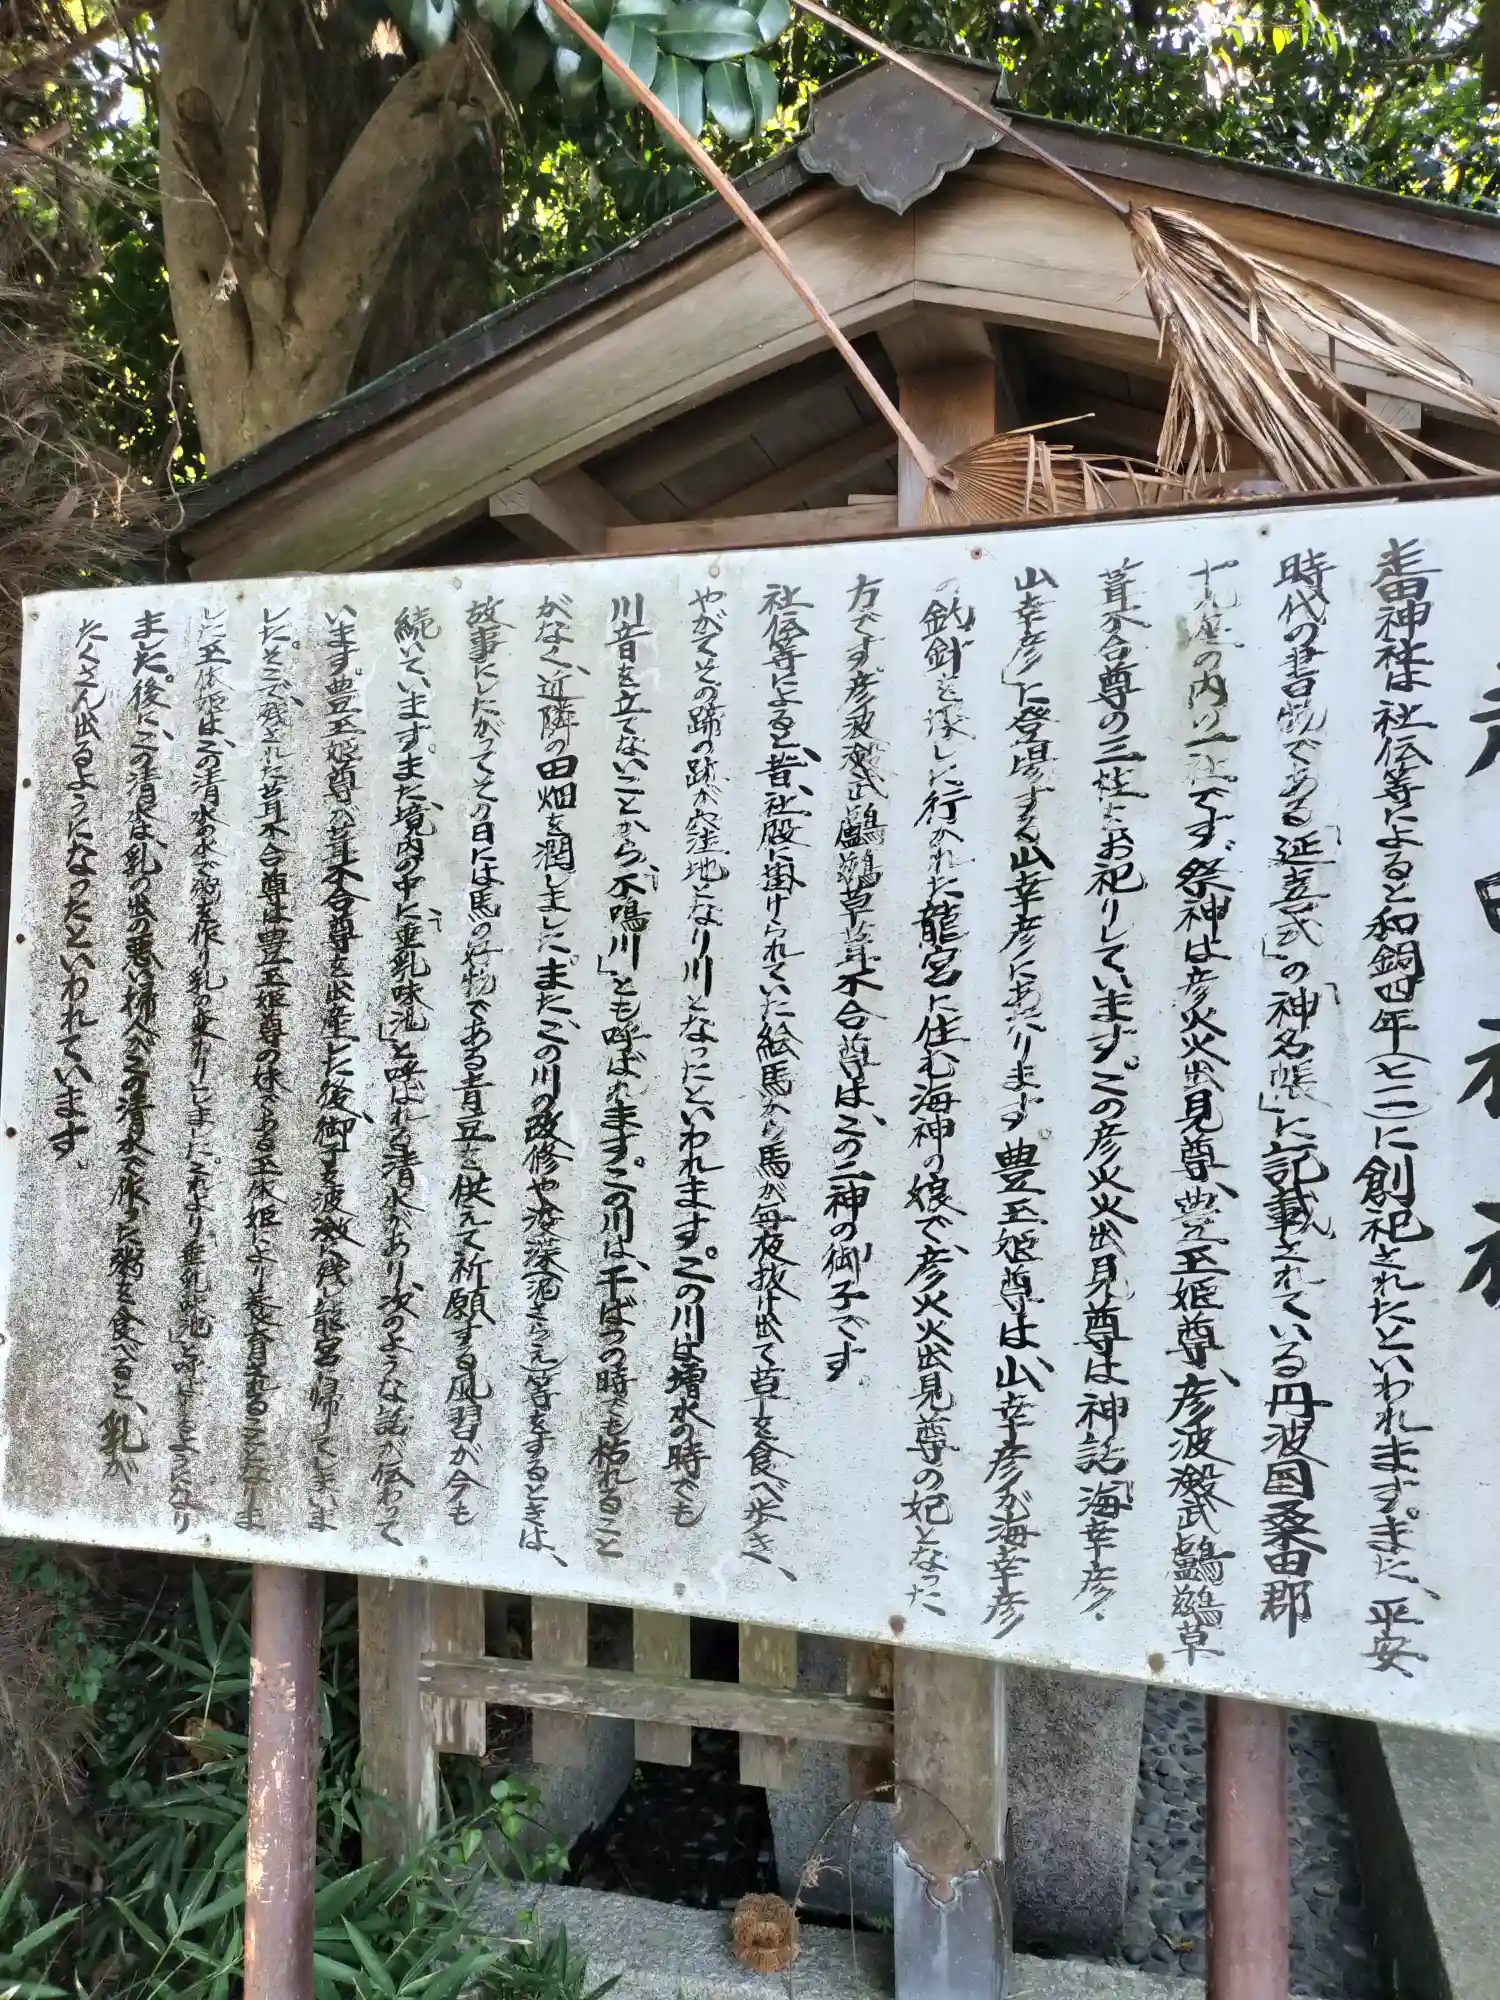 走田神社
走田神社は社伝等によると和銅四年(七一一)に創祀されたといわれます。また、平安
時代の書物である「延喜式」の「神名帳」に記載されている丹波国桑田郡
十九座の内の一社です。祭神は彦火火出見尊、豊玉姫尊、彦波瀲武鸕鷀草
葺不合尊の三柱をお祀りしています。この彦火火出見尊は神話「海幸彦・
山幸彦」に登場する山幸彦にあたります。豊玉姫尊は、山幸彦が海幸彦
の釣針を探しに行かれた龍宮に住む海神の娘で、彦火火出見尊の妃となった
方です。彦波瀲武鸕鷀草葺不合尊は、この二神の御子です。
社伝等によると、昔、社殿に掛けられていた絵馬から馬が毎夜抜け出て草を食べ歩き、
やがてその蹄の跡が穴窪地となり川となったといわれます。この川は増水の時でも
川音を立てないことから、「不鳴川」とも呼ばれます。この川は、干ばつの時でも枯れること
がなく、近隣の田畑を潤しました。また、この川の改修や浚渫(泥さらえ)等をするときは、
故事にしたがってその日には馬の好物である青豆を供えて祈願する風習が今も
続いています。また、境内の中に「垂乳味池」と呼ばれる清水があり、次のような話が伝わって
います。豊玉姫尊が葺不合尊を出産した後、御子を波激に残し龍宮に帰ってしまいま
した。そこで、残された葺不合尊は豊玉姫尊の妹である玉依姫により養育されることになりま
した。玉依姫は、この清水の水で粥を作り乳の変わりとしました。これより「垂乳味池」と呼ばれるようになり
ました。後に、この清水は乳の出の悪い婦人がこの清水で作った粥を食べると、乳が
たくさん出るようになったといわれています。